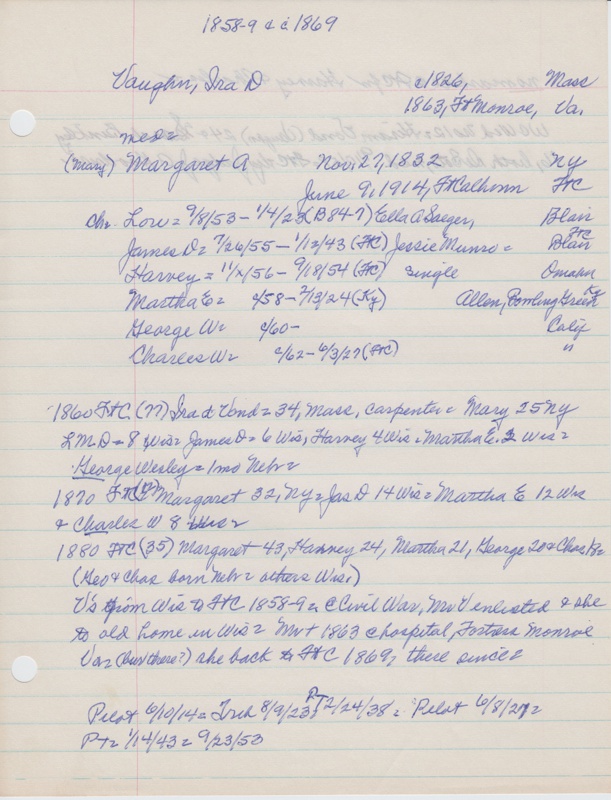 1858-9 & c 1869
Vaughn, Ira D c1826, Mass
1863, Ft Monroe, Va.
med=
(Mary) Margaret A Nov, 27, 1832 NY
June 9, 1914, Ft Calhoun FtC
Ch. Low = 9/8/53 - 1/4/23 (B847) Ella A Seger, Blair
James D = 7/26/55 - 1/12/43 (FtC) Jessie Munro = Blair FtC
Harvey = 11/ /56 - 9/18/54 (FtC) single Omaha
Martha E = c/58 - 2/13/24 (Ky) Allen, Bowling Green Ky
George W = c/60 - Calif
Charles W = c/62 - 6/3/27 (FtC) "
1860 FtC (77) Ira d Vond = 34, Mass, carpenter = Mary 25 NY
L.M.D = 8 Wis = James D = 6 Wis, Harvey 4 Wis = Martha E. 2 Wis =
George Wesley = 1mo Nebr =
1870 FtC (17) Margaret 32, NY = Jas D 14 Wis = Martha E 12 Wis
& Charles W 8 Wis =
1880 FtC (35) Margaret 43, Harvey 24, Martha 21, George 20 & Chas
(Geo & Chas born Nebr = others Wis.)
V's from Wis to FtC 1858-9 = c Civil War, Mr V enlisted & she
to old home in Wis = Mr + 1863 c hospital, Fortress Monroe
Va = (bur there?) she back to FtC 1869, there since =
Pilot 6/10/14 = Trib 8/9/23, PT 2/24/38 = Pilot 6/8/27 =
PT = 1/14/43 = 9/23/53